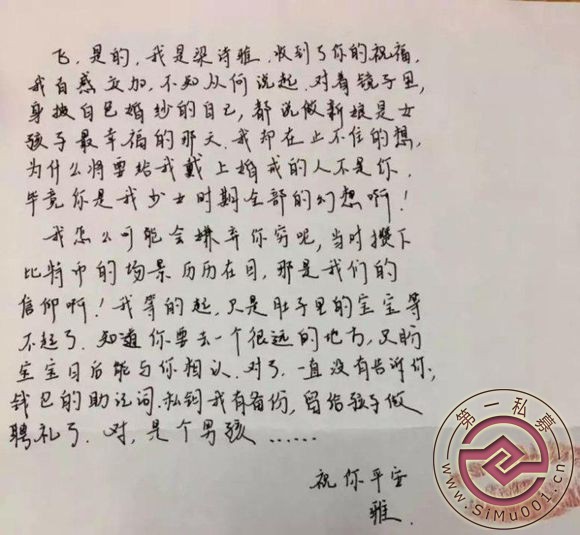 飞，是的，我是梁诗雅，收到了你的祝福，
我百感交加，不知从何说起，对着镜子里，
身披白色婚纱的自己，都说做新娘是女
孩子最幸福的那天，我却在止不住的想，
为什么将要给我戴上婚戒的人不是你，
毕竟你是我少女时期全部的幻想啊！
我怎么可能会嫌弃你穷呢，当时攒下
比特币的场景历历在目，那是我们的
信仰啊！我等的起，只是肚子里的宝宝等
不起了，知道你要去一个很远的地方，只盼
宝宝日后能与你相认，对了，一直没有告诉你，
钱包的助记词，私钥我有备份，留给孩子做
聘礼了，对，是个男孩……
祝你平安
雅.
第一私募
www.SiMu001.cn